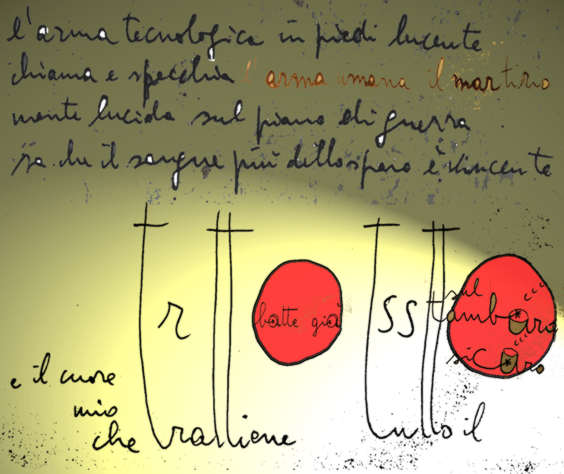 l'arma tecnologica in piedi lucente
chiama e specchia l'arma umana il martirio
mente lucida sul piano di guerra
sa che il sangue più dello sparo è vincente
tr tt batte già ss tt sul
tamburo
sicuro
e il cuore
mio
che trattiene tutto il